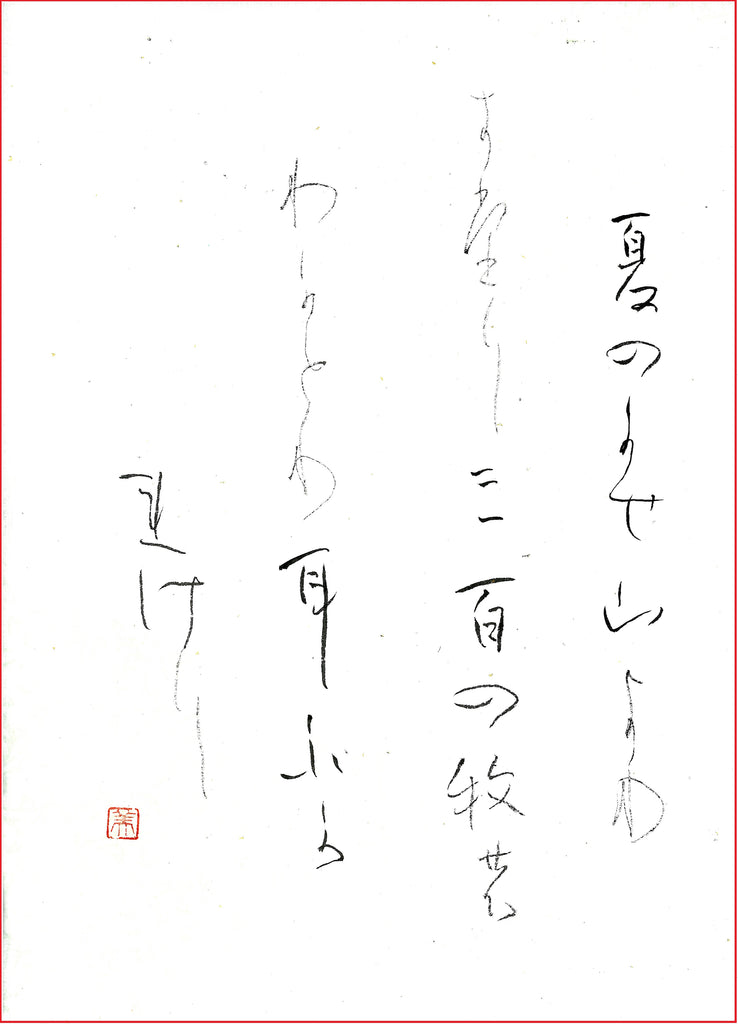 夏のかせ山より
き堂り三百の牧農
わかうま耳不か
連けり